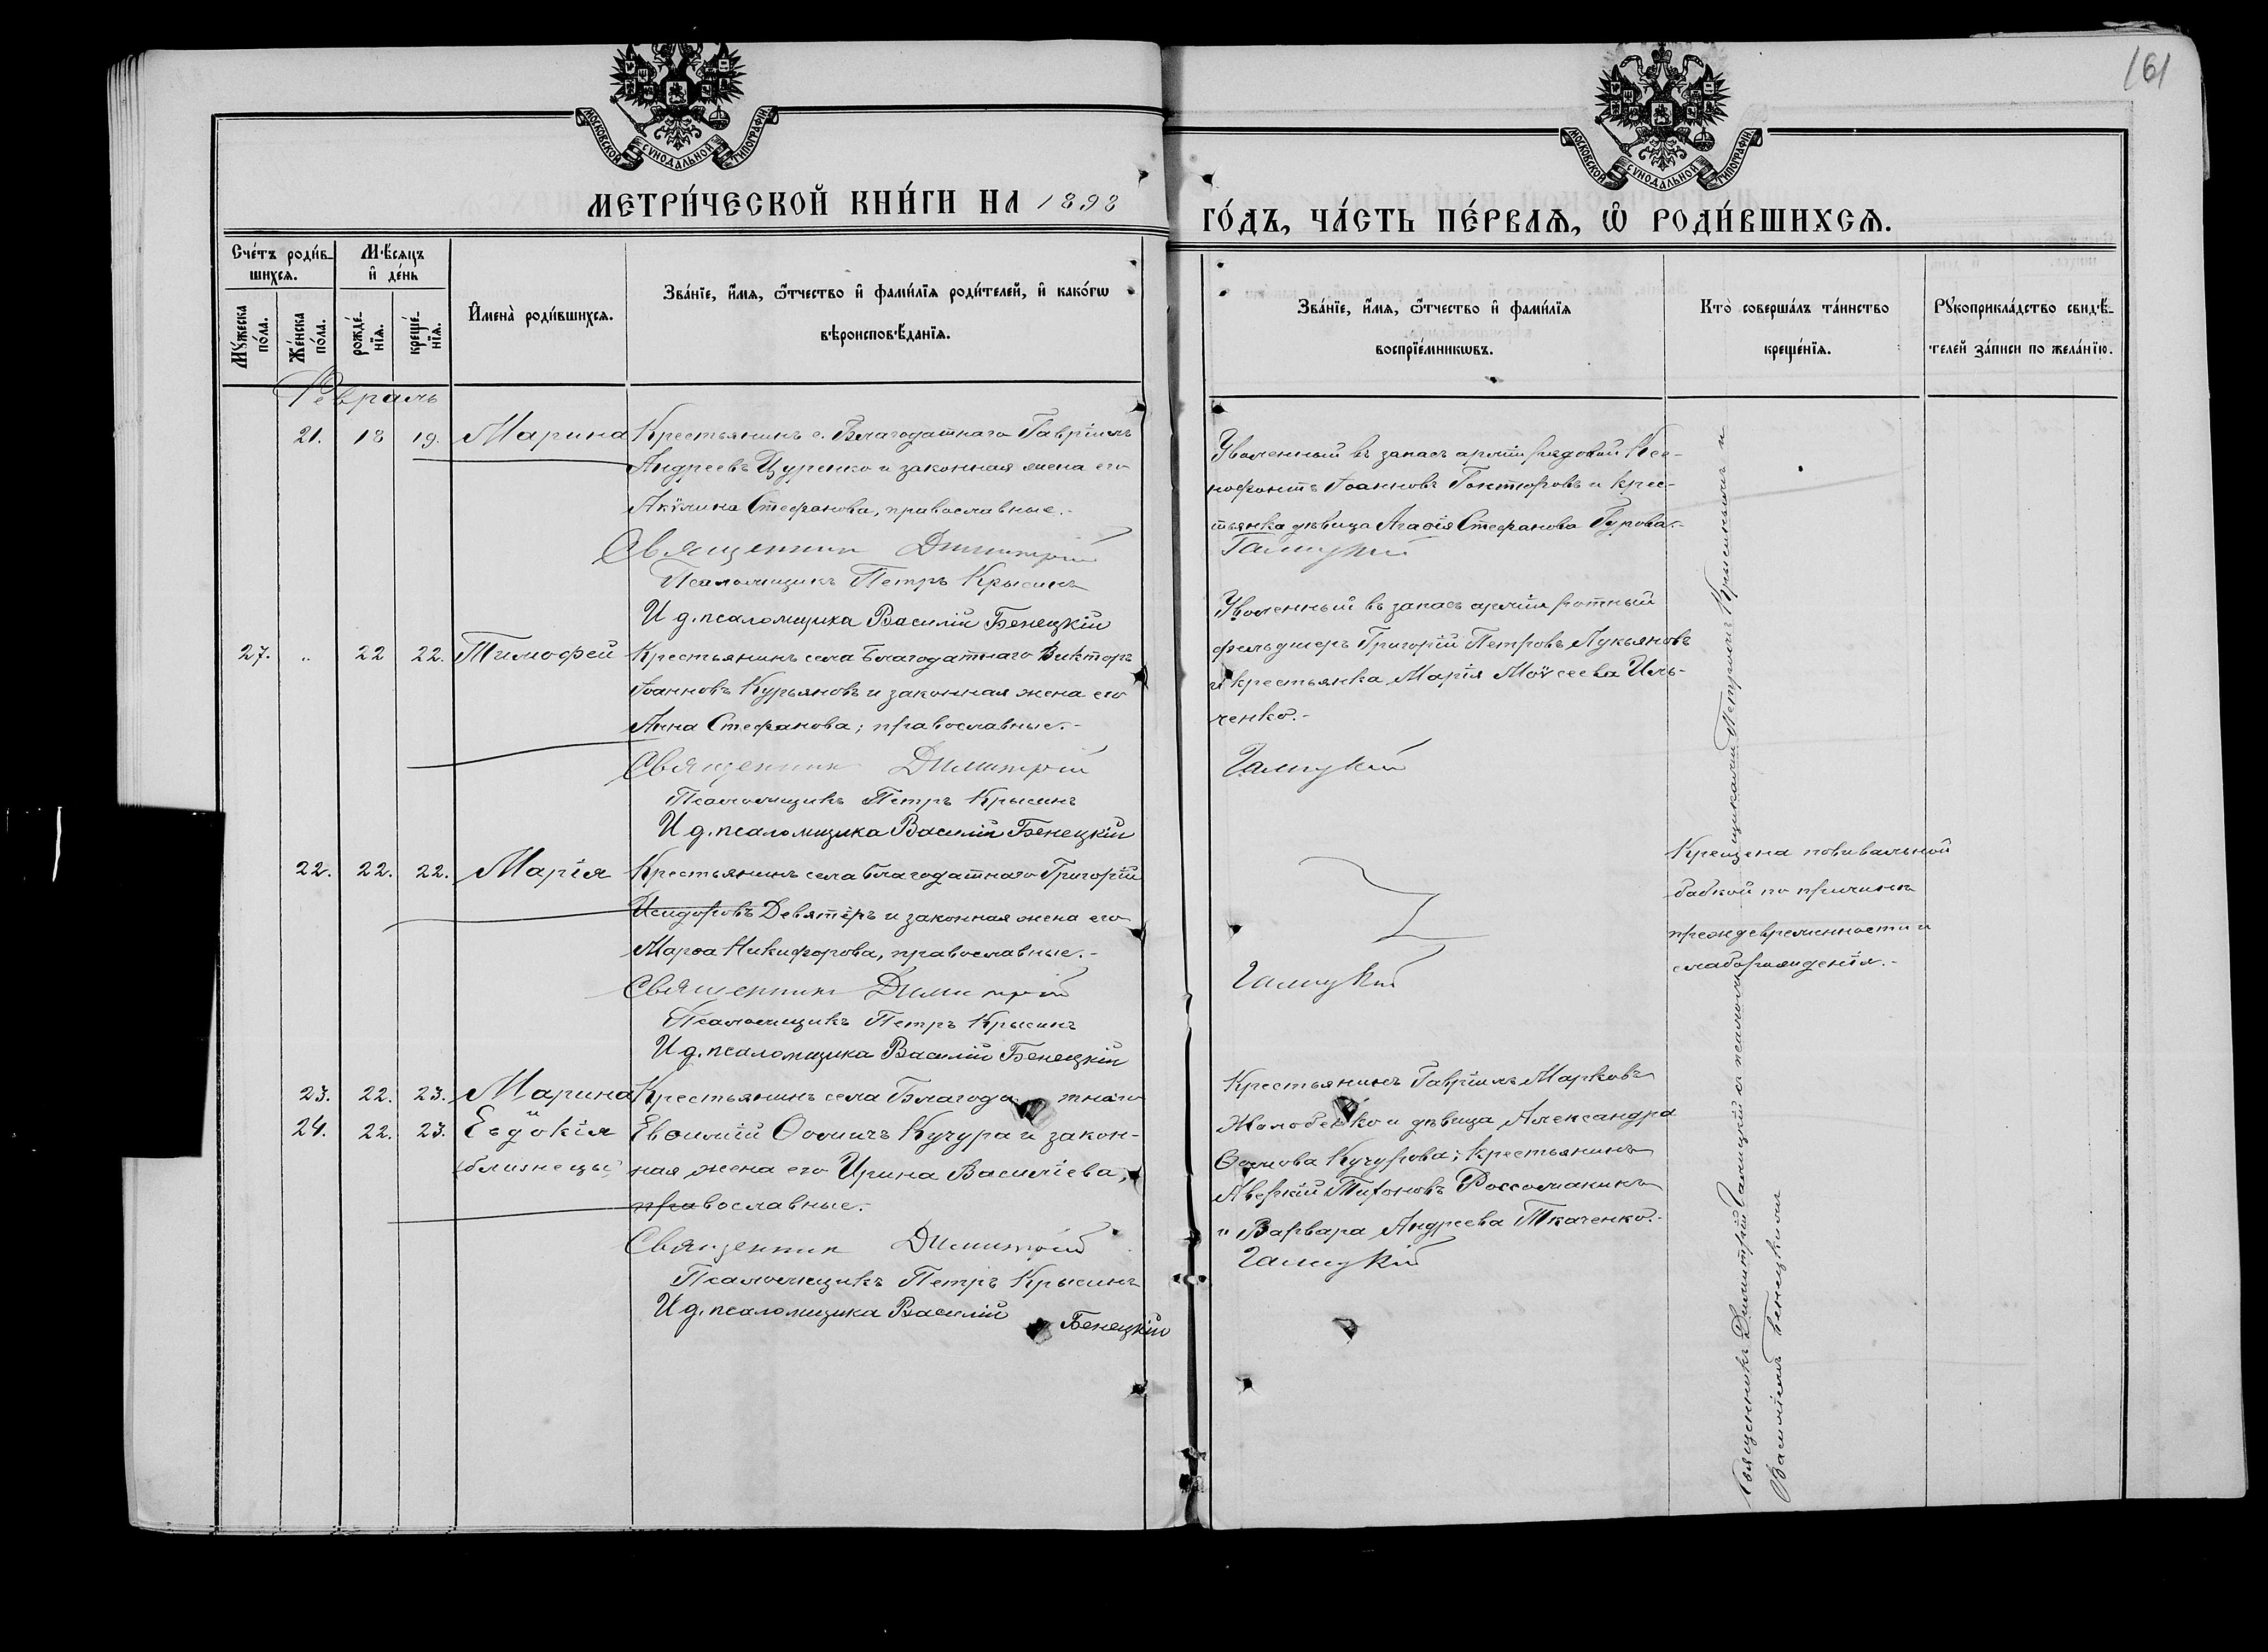 161
МОСКОВСКОЙ СѴНОДАЛЬНОЙ ТИПОГРАФІИ
МОСКОВСКОЙ СѴНОДАЛЬНОЙ ТИПОГРАФІИ
МЕТРИ́ЧЕСКОЙ КНИ́ГИ НА 1898
ГО́ДЪ, ЧА́СТЬ ПЕ́РВАѦ, Ѽ РОДИ́ВШИХСѦ.
Сче́тъ роди́в-
шихсѧ.
Мꙋжеска по́ла.
Же́нска по́ла.
Мѣ́сѧцъ
и҆ де́нь
рожде́-
нїѧ.
креще́-
нїѧ.
И҆мена̀ роди́вшихсѧ.
Зва́нїе, и҆́мѧ, ѻ҆́тчество и҆ фами́лїѧ роди́телей, и҆ како́гѡ
вѣроисповѣ́данїѧ.
Зва́нїе, и҆́мѧ, ѻ҆́тчество и҆ фами́лїѧ
воспрїе́мникѡвъ.
Кто̀ соверша́лъ та́инство
креще́нїѧ.
Рꙋкоприкла́дство свидѣ́-
телей за́писи по жела́нїю.
Февраль
21. 18 19. Марина Крестьянинъ с. Благодатнаго Гавріилъ
Андреевъ Цуренко и законная жена его
Акѵлина Стефанова, православные.-
Священник Димитрій
Псаломщикъ Петръ Крысинъ
И д. псаломщика Василій Бенецкій
Уволенный въ запасъ арміи рядовой Ксе-
нофонтъ Іоанновъ Гоктюровъ и крес-
тьянка дѣвица Агаѳія Стефанова Гурова.-
Галицкій
27. „ 22 22. Тимофей Крестьянинъ села Благодатнаго Викторъ
Іоанновъ Курьяновъ и законная жена его
Анна Стефанова; православные.-
Священник Димитрій
Псаломщикъ Петръ Крысинъ
И д. псаломщика Василій Бенецкій
Уволенный въ запасъ арміи ротный
фельдшеръ Григорій Петровъ Лукьяновъ
и крестьянка Марія Моѵсеева Иль-
ченко.-
Галицкій
22. 22. 22. Марія Крестьянинъ села Благодатнаго Григорій
Исидоровъ Девятёръ и законная жена его
Марѳа Никифорова, православные.-
Священник Димитрій
Псаломщикъ Петръ Крысинъ
И д. псаломщика Василій Бенецкій
Галицкій
Крещена повивальной
бабкой по причинѣ
преждевременности и
слаборожденія.-
23. 22. 23. Марина Крестьянинъ села Благодатнаго
24. 22. 23. Евдокія Евѳимій Ѳомичъ Кучура и закон-
близнецы ная жена его Ирина Василіева,
православные.-
Священник Димитрій
Псаломщикъ Петръ Крысинъ
И д. псаломщика Василій Бенецкій
Крестьянинъ Гавріилъ Марковъ
Жолобенко и дѣвица Александра
Ѳомова Кучурова; крестьянинъ
Аверкій Тихоновъ Россомакинъ
и Варвара Андреева Ткаченко.-
Галицкій
Священникъ Димитрій Галицкій съ псаломщиками Петромъ Крысинымъ и
Василіемъ Бенецкимъ